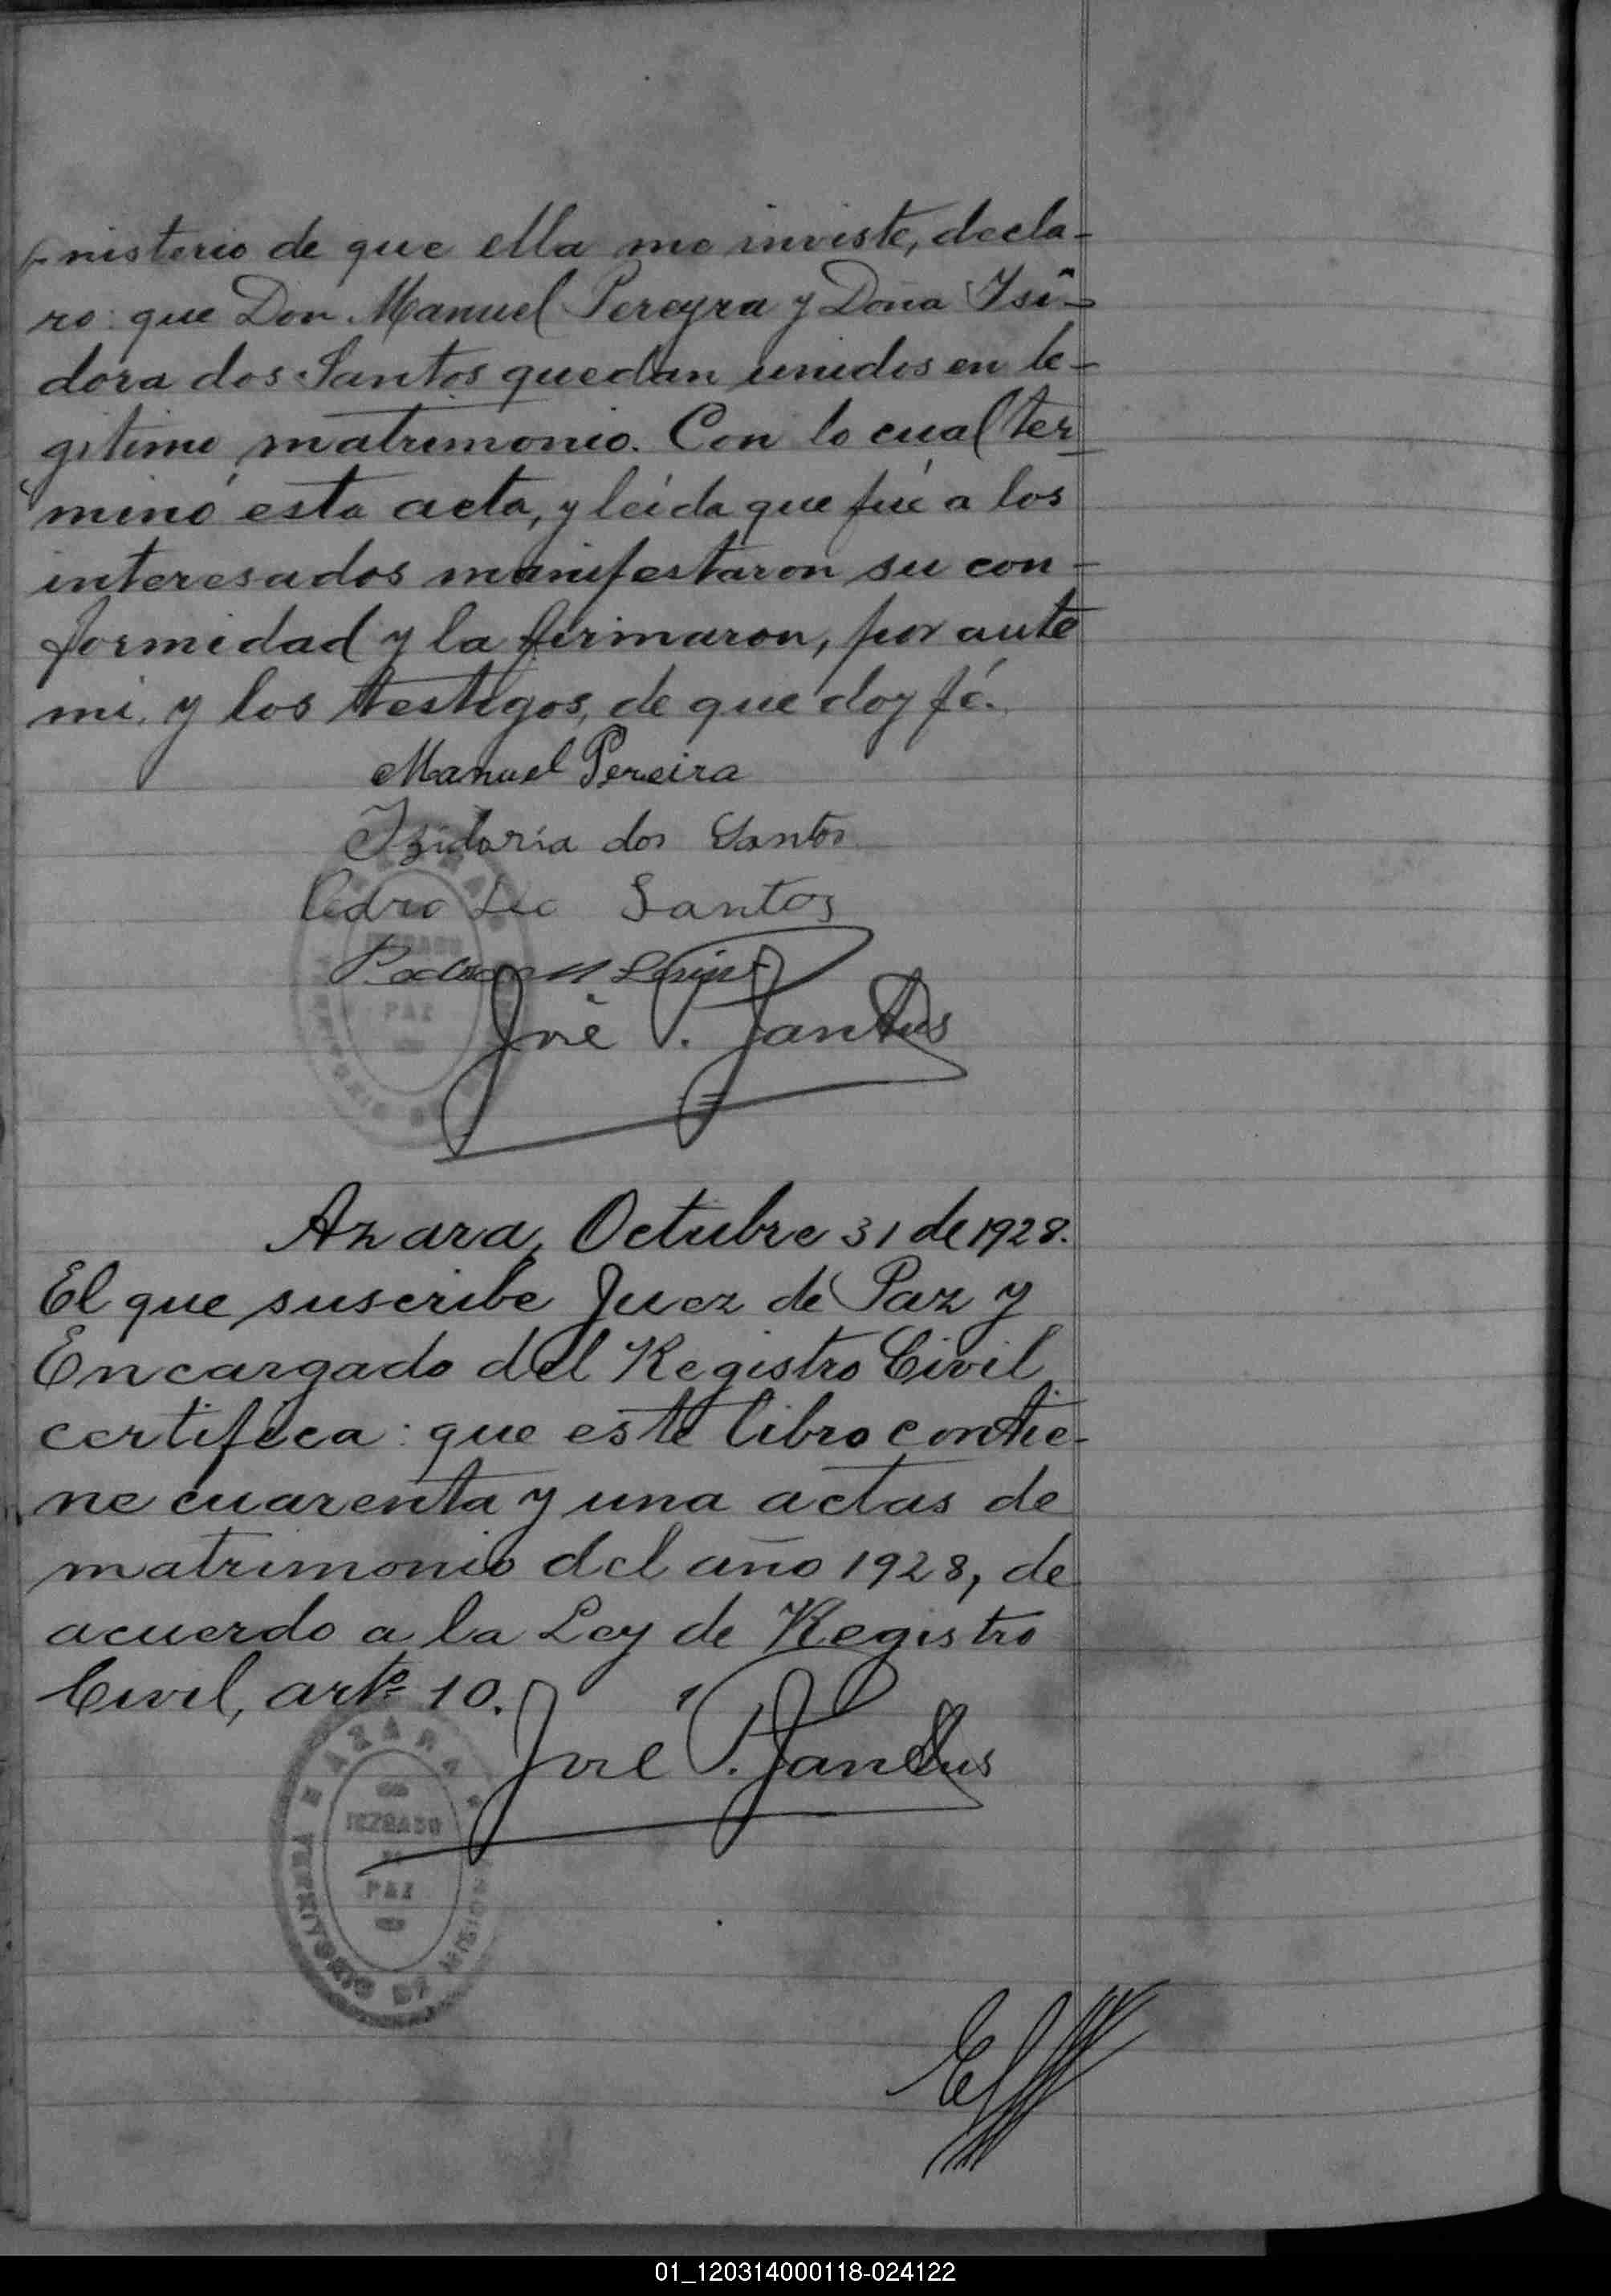 nisterio de que ella me inviste, decla-
ro: que Don Manuel Pereyra y Doña Isi-
dora dos Santos quedan unidos en le-
gitimo matrimonio. Con lo cual ter-
minó esta acta, y leída que fué a los
interesados manifestaron su con-
formidad y la firmaron, por ante
mi y los testigos, de que doy fé.
Manuel Pereira
Izidoria dos Santos
Pedro Leo Santos
Pedro
José P. Jantus
Azara, Octubre 31 de 1928.
El que suscribe Juez de Paz y
Encargado del Registro Civil
certifica: que este libro contie-
ne cuarenta y una actas de
matrimonio del año 1928, de
acuerdo a la Ley de Registro
Civil, artº 10.
José P. Jantus
AZARA
JUZGADO
DE
PAZ
TERRITORIO DE MISIONES
01_120314000118-024122